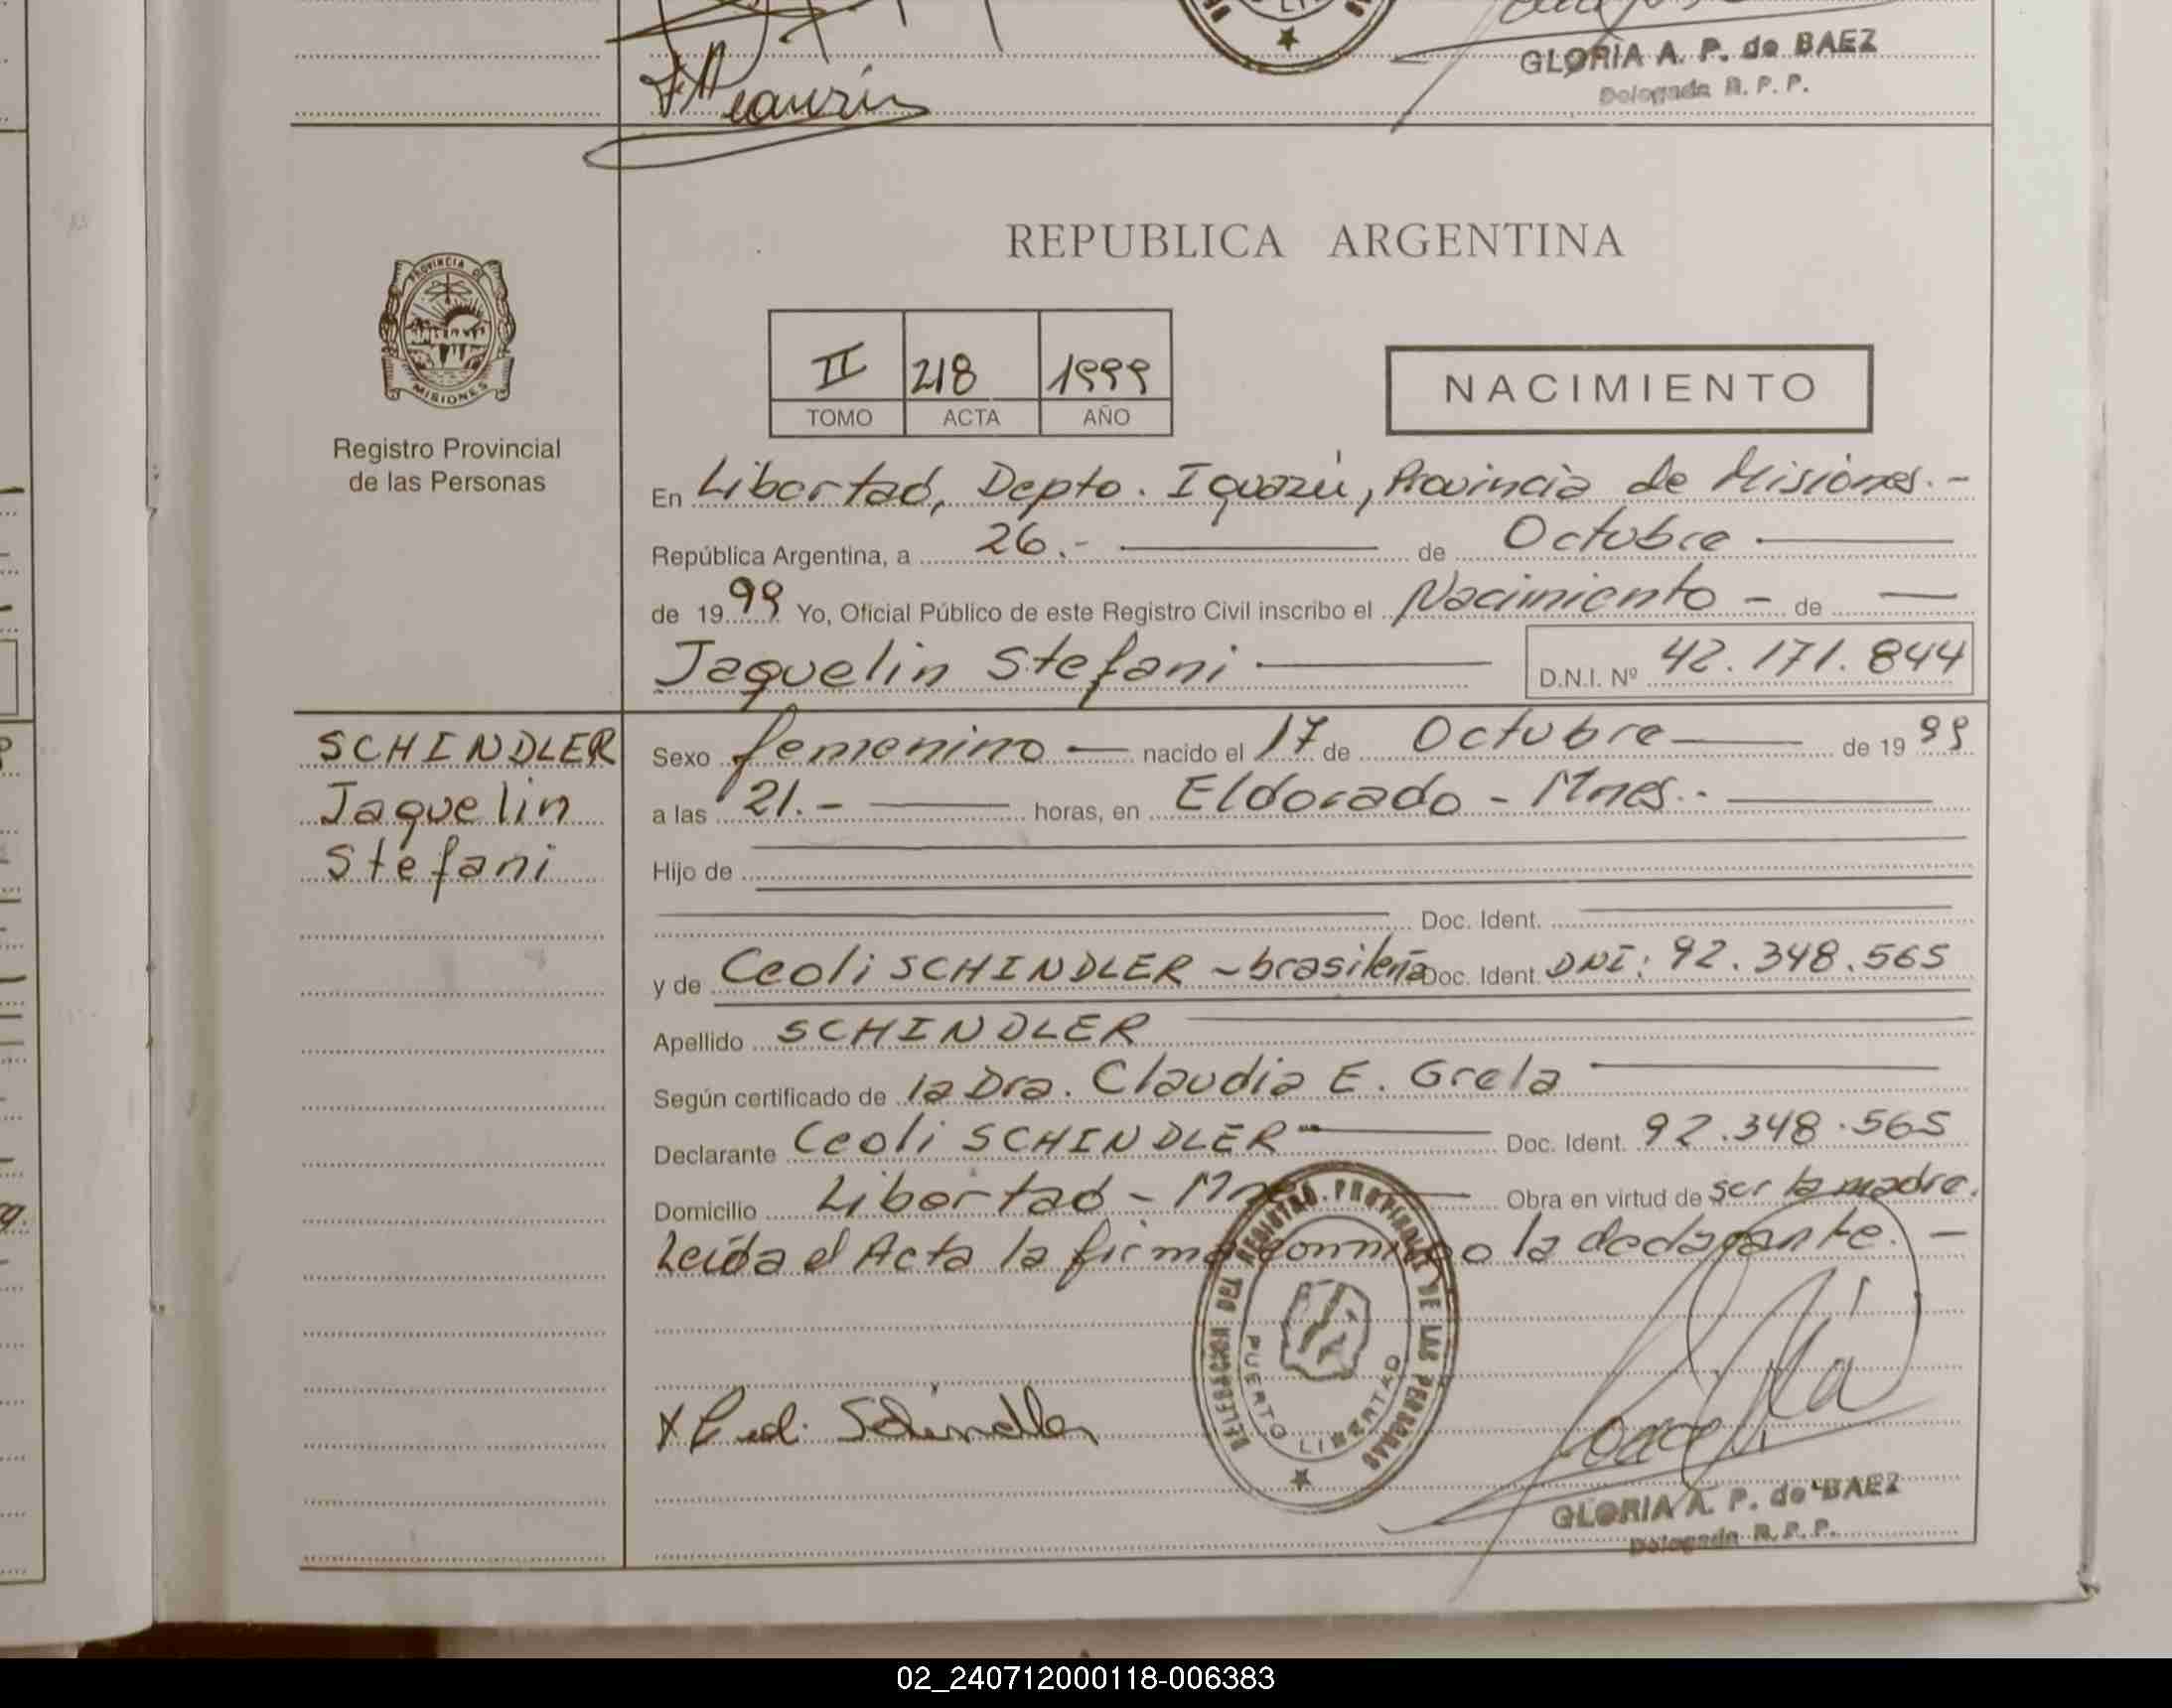 GLORIA A. P. de BAEZ
Delegada R. P. P.
PROVINCIA DE
MISIONES
Registro Provincial
de las Personas
REPUBLICA ARGENTINA
II 218 1999
TOMO ACTA AÑO
NACIMIENTO
En Libertad, Depto. Iguazú, Provincia de Misiones.-
República Argentina, a 26.- de Octubre
de 1999 Yo, Oficial Público de este Registro Civil inscribo el Nacimiento - de
Jaquelin Stefani D.N.I. Nº 42.171.844
SCHINDLER
Jaquelin
Stefani
Sexo femenino nacido el 17 de Octubre de 1999
a las 21.- horas, en Eldorado - Mnes.-
Hijo de
Doc. Ident.
y de Ceoli SCHINDLER - brasileña Doc. Ident. DNI: 92.348.565
Apellido SCHINDLER
Según certificado de la Dra. Claudia E. Grela
Declarante Ceoli SCHINDLER Doc. Ident. 92.348.565
Domicilio Libertad - Mnes Obra en virtud de ser la madre.
Leída el Acta la firma conmigo la declarante. -
DELEGACION DEL REGISTRO PROVINCIAL DE LAS PERSONAS
PUERTO LIBERTAD
x Ceoli Schindler
GLORIA A. P. de BAEZ
Delegada R. P. P.
02_240712000118-006383